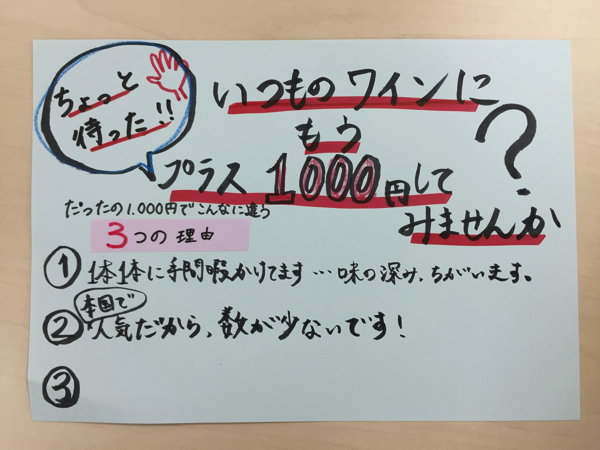 ちょっと
待った!!
いつものワインに
もう
プラス1000円して
みませんか?
だったの1.000円でこんなに違う
3つの理由
① 1本1本に手間暇かけてます…味の深み、ちがいます。
本国で
② 人気だから、数が少ないです!
③